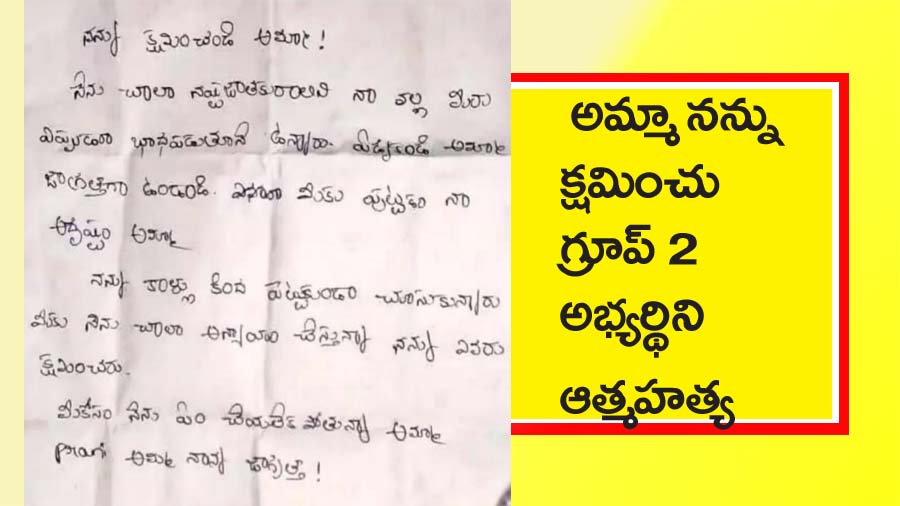 నన్ను క్షమించండి అమ్మా!
నేను చాలా నష్టజాతకురాలిని నా వల్ల మీరు
ఎప్పుడూ భాధపడుతూనే ఉన్నారు. ఏడ్వకండి అమ్మా
జాగ్రత్తగా ఉండండి. మీకు పుట్టడం నా
అదృష్టం అమ్మా
నన్ను కాళ్లు కింద పెట్టకుండా చూసుకున్నారు
మీకు నేను చాలా అన్యాయం చేస్తున్నా నన్ను ఎవరు
క్షమించరు.
మీకోసం నేను ఏం చేయలేక పోతున్నా అమ్మా
అమ్మ నాన్న జాగ్రత్త!
అమ్మా నన్ను
క్షమించు
గ్రూప్ 2
అభ్యర్థిని
ఆత్మహత్య